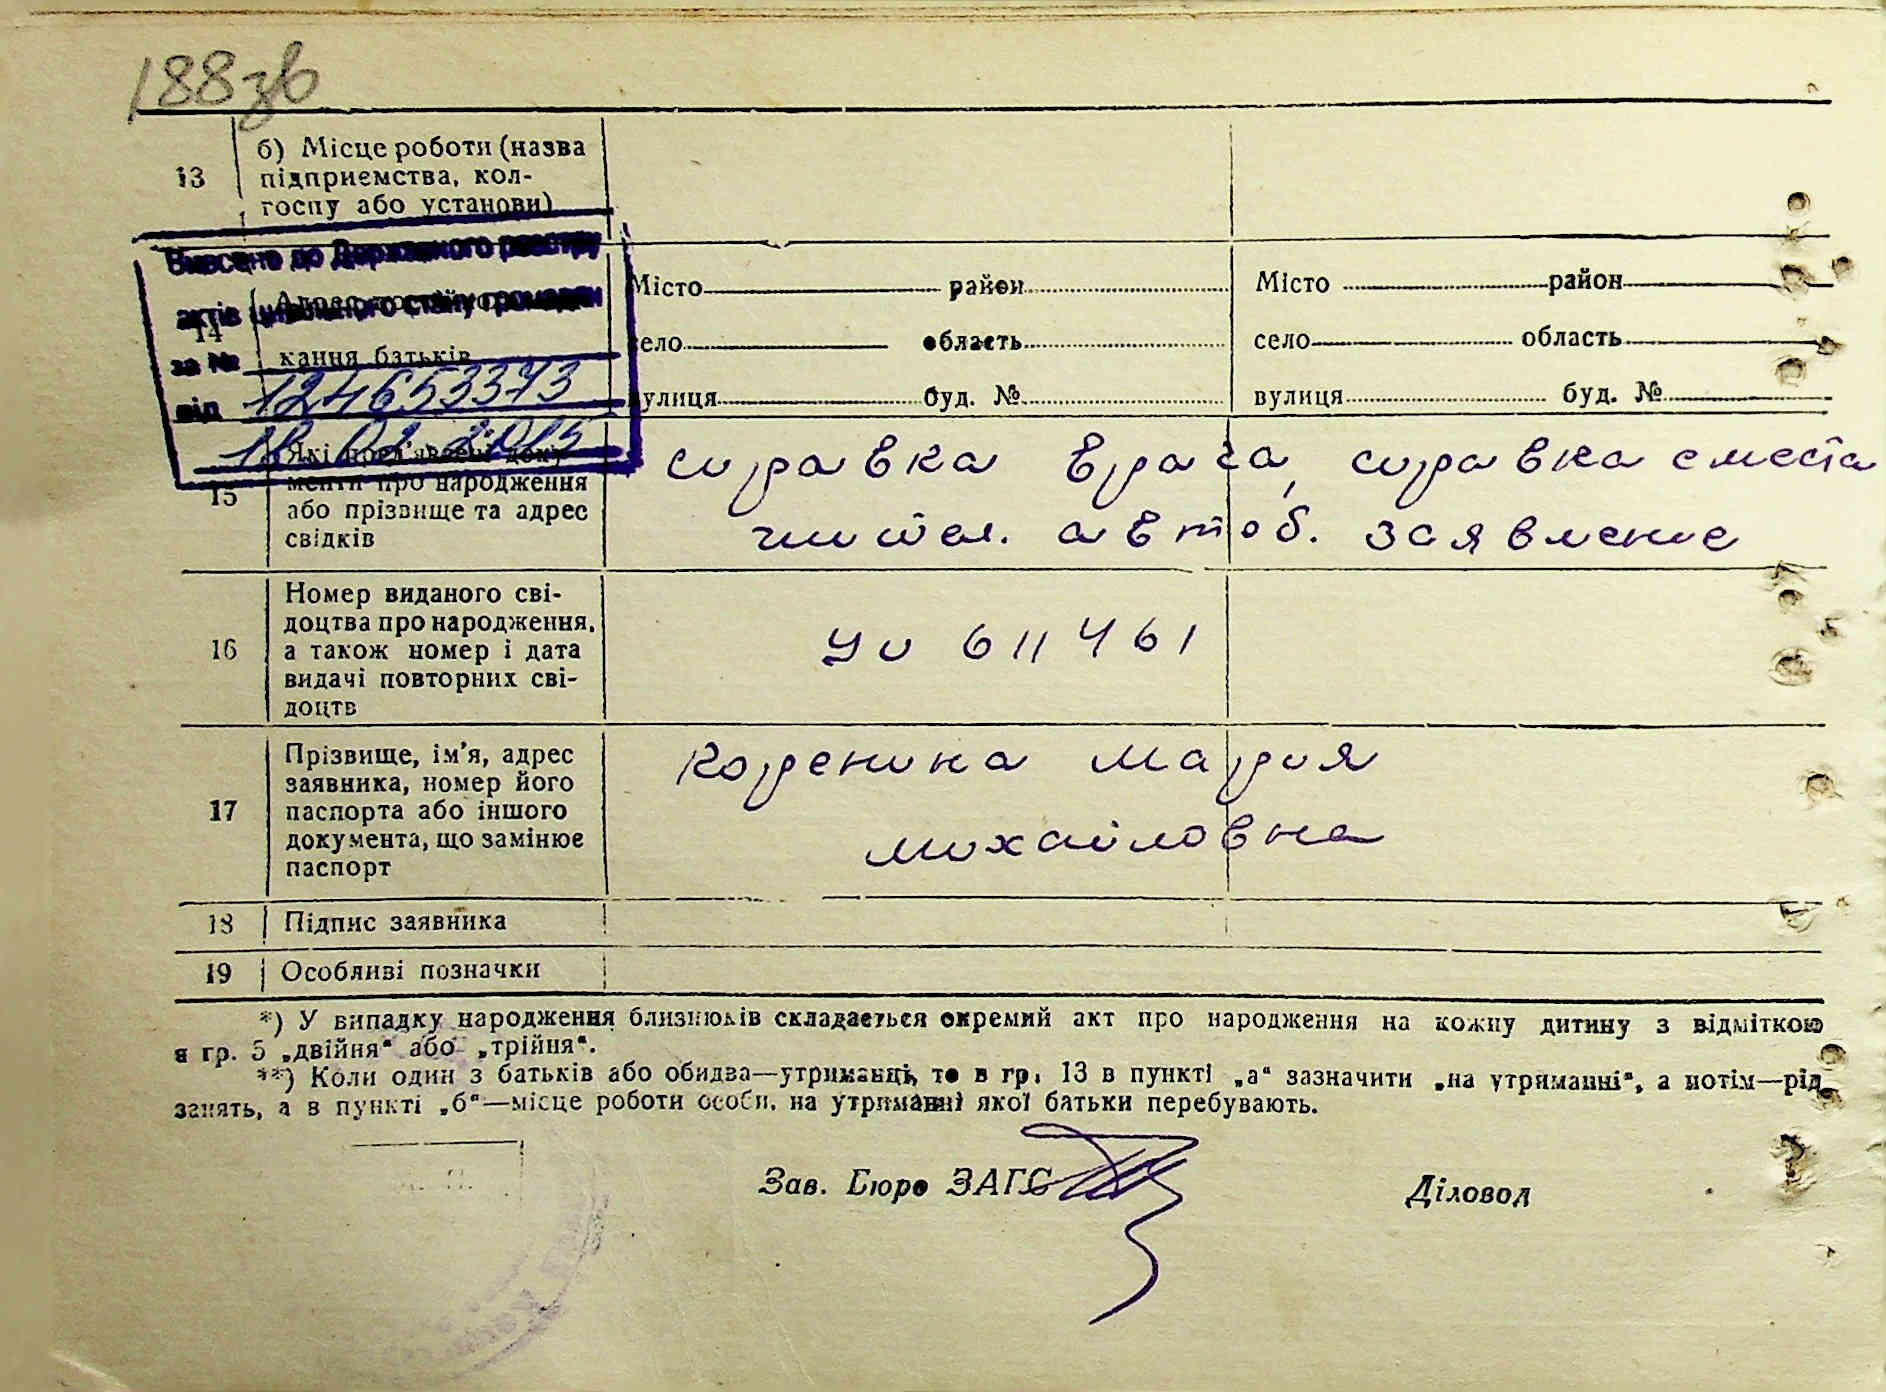 188зв
13
б) Місце роботи (назва
підприємства, кол-
госпу або установи)
Внесено до Державного реєстру
актів цивільного стану громадян
за №
124653373
від
18.02.2015
14
кання батьків
Місто район
село область
вулиця буд. №
Місто район
село область
вулиця буд. №
15
Які пред'явлені доку-
менти про народження
або прізвище та адрес
свідків
справка врача, справка с места
жител. автоб. заявление
16
Номер виданого сві-
доцтва про народження,
а також номер і дата
видачі повторних сві-
доцтв
611461
17
Прізвище, ім'я, адрес
заявника, номер його
паспорта або іншого
документа, що замінює
паспорт
Коренина Мария
Михайловна
18 Підпис заявника
19 Особливі позначки
*) У випадку народження близнюків складається окремий акт про народження на кожну дитину з відміткою
в гр. 5 „двійня“ або „трійня“.
**) Коли один з батьків або обидва—утриманці, то в гр. 13 в пункті „а“ зазначити „на утриманні“, а потім—рід
занять, а в пункті „б“—місце роботи особи, на утриманні якої батьки перебувають.
Зав. Бюро ЗАГС
Діловод